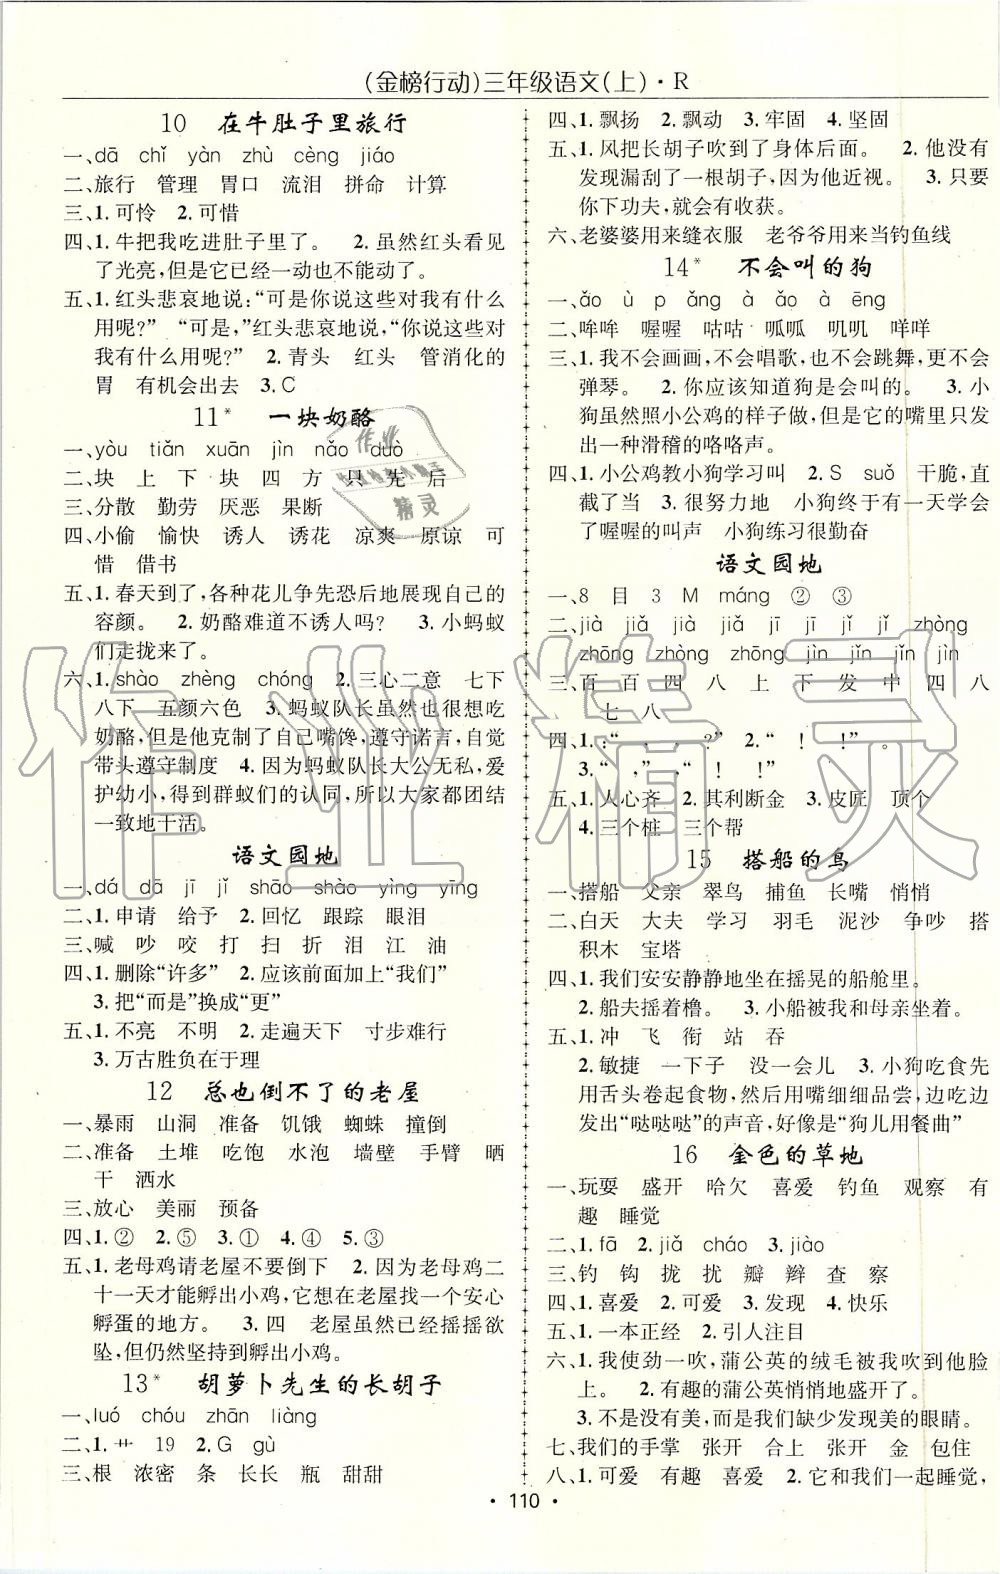 (金榜行动)三年级语文(上)·R
10 在牛肚子里旅行
一、dā chǐ yàn zhù cèng jiáo
二、旅行 管理 胃口 流泪 拼命 计算
三、1.可怜 2.可惜
四、1.牛把我吃进肚子里了。 2.虽然红头看见
了光亮,但是它已经一动也不能动了。
五、1.红头悲哀地说:“可是你说这些对我有什么
用呢?” “可是,”红头悲哀地说,“你说这些对
我有什么用呢?” 2.青头 红头 管消化的
胃 有机会出去 3.C
11* 一块奶酪
一、yòu tiǎn xuān jìn nǎo duò
二、块 上 下 块 四 方 只 先 后
三、分散 勤劳 厌恶 果断
四、小偷 愉快 诱人 诱花 凉爽 原谅 可
惜 借书
五、1.春天到了,各种花儿争先恐后地展现自己的
容颜。 2.奶酪难道不诱人吗? 3.小蚂蚁
们走拢来了。
六、1.shào zhèng chóng 2.三心二意 七下
八下 五颜六色 3.蚂蚁队长虽然也很想吃
奶酪,但是他克制了自己嘴馋,遵守诺言,自觉
带头遵守制度 4.因为蚂蚁队长大公无私,爱
护幼小,得到群蚁们的认同,所以大家都团结
一致地干活。
语文园地
一、dá dā jī jǐ shāo shào yìng yīng
二、1.申请 给予 2.回忆 跟踪 眼泪
三、喊 吵 咬 打 扫 折 泪 江 油
四、1.删除“许多” 2.应该前面加上“我们”
3.把“而是”换成“更”
五、1.不亮 不明 2.走遍天下 寸步难行
3.万古胜负在于理
12 总也倒不了的老屋
一、暴雨 山洞 准备 饥饿 蜘蛛 撞倒
二、准备 土堆 吃饱 水泡 墙壁 手臂 晒
干 洒水
三、放心 美丽 预备
四、1.② 2.⑤ 3.① 4.④ 5.③
五、1.老母鸡请老屋不要倒下 2.老母鸡二
十一天才能孵出小鸡,它想在老屋找一个安心
孵蛋的地方。 3.四 老屋虽然已经摇摇欲
坠,但仍然坚持到孵出小鸡。
13* 胡萝卜先生的长胡子
一、luó chóu zhān liàng
二、1.艹 19 2.G gù
三、根 浓密 条 长长 瓶 甜甜
四、1.飘扬 2.飘动 3.牢固 4.坚固
五、1.风把长胡子吹到了身体后面。 2.他没有
发现漏刮了一根胡子,因为他近视。 3.只要
你下功夫,就会有收获。
六、老婆婆用来缝衣服 老爷爷用来当钓鱼线
14* 不会叫的狗
一、ǎo ù p ǎng à ǎo à ēng
二、哞哞 喔喔 咕咕 呱呱 叽叽 咩咩
三、1.我不会画画,不会唱歌,也不会跳舞,更不会
弹琴。 2.你应该知道狗是会叫的。 3.小
狗虽然照小公鸡的样子做,但是它的嘴里只发
出一种滑稽的咯咯声。
四、1.小公鸡教小狗学习叫 2.S suǒ 干脆,直
截了当 3.很努力地 小狗终于有一天学会
了喔喔的叫声 小狗练习很勤奋
语文园地
一、8 目 3 M máng ② ③
二、jià jiǎ jià jiǎ jī jī jǐ jǐ zhòng
zhōng zhòng zhōng jìn jǐn jǐn jìn
三、百 百 四 八 上 下 发 中 四 八
七 八
四、1.:“ , , ?” 2.“ ! !” 。
3.“ ,” ,“ ! !”
五、1.人心齐 2.其利断金 3.皮匠 顶个
4.三个桩 三个帮
15 搭船的鸟
一、搭船 父亲 翠鸟 捕鱼 长嘴 悄悄
二、白天 大夫 学习 羽毛 泥沙 争吵 搭
积木 宝塔
四、1.我们安安静静地坐在摇晃的船舱里。
2.船夫摇着橹。 3.小船被我和母亲坐着。
五、1.冲 飞 衔 站 吞
2.敏捷 一下子 没一会儿 3.小狗吃食先
用舌头卷起食物,然后用嘴细细品尝,边吃边
发出“哒哒哒”的声音,好像是“狗儿用餐曲”
16 金色的草地
一、玩耍 盛开 哈欠 喜爱 钓鱼 观察 有
趣 睡觉
二、1.fā 2.jiǎ cháo 3.jiào
三、钓 钩 拢 扰 瓣 辫 查 察
四、1.喜爱 2.可爱 3.发现 4.快乐
五、1.一本正经 2.引人注目
六、1.我使劲一吹,蒲公英的绒毛被我吹到他脸
上。 2.有趣的蒲公英悄悄地盛开了。
3.不是没有美,而是我们缺少发现美的眼睛。
七、我们的手掌 张开 合上 张开 金 包住
八、1.可爱 有趣 喜爱 2.它和我们一起睡觉,
·110·
作业精灵
作业
精灵